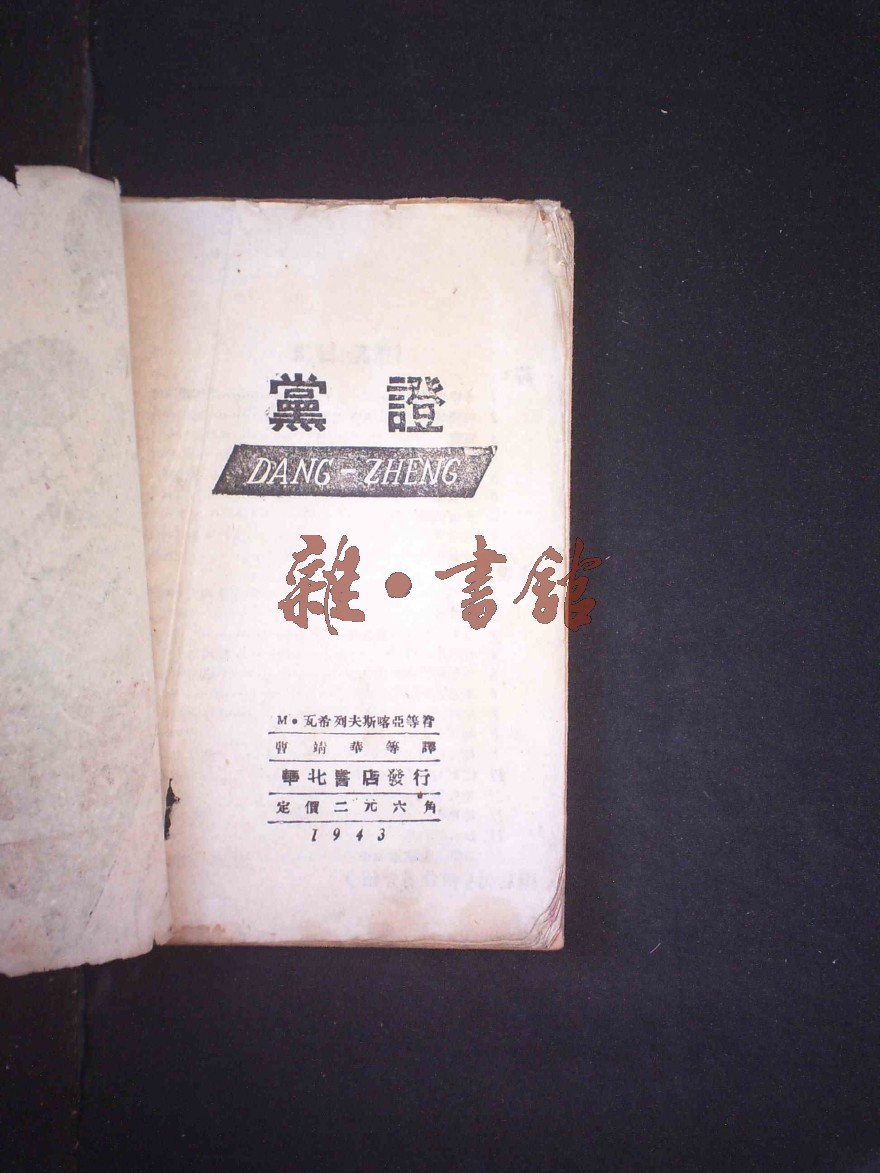 黨證
DANG-ZHENG
雜•書館
M•瓦希列夫斯喀亞等著
曹靖華等譯
華北書店發行
定價二元六角
1943